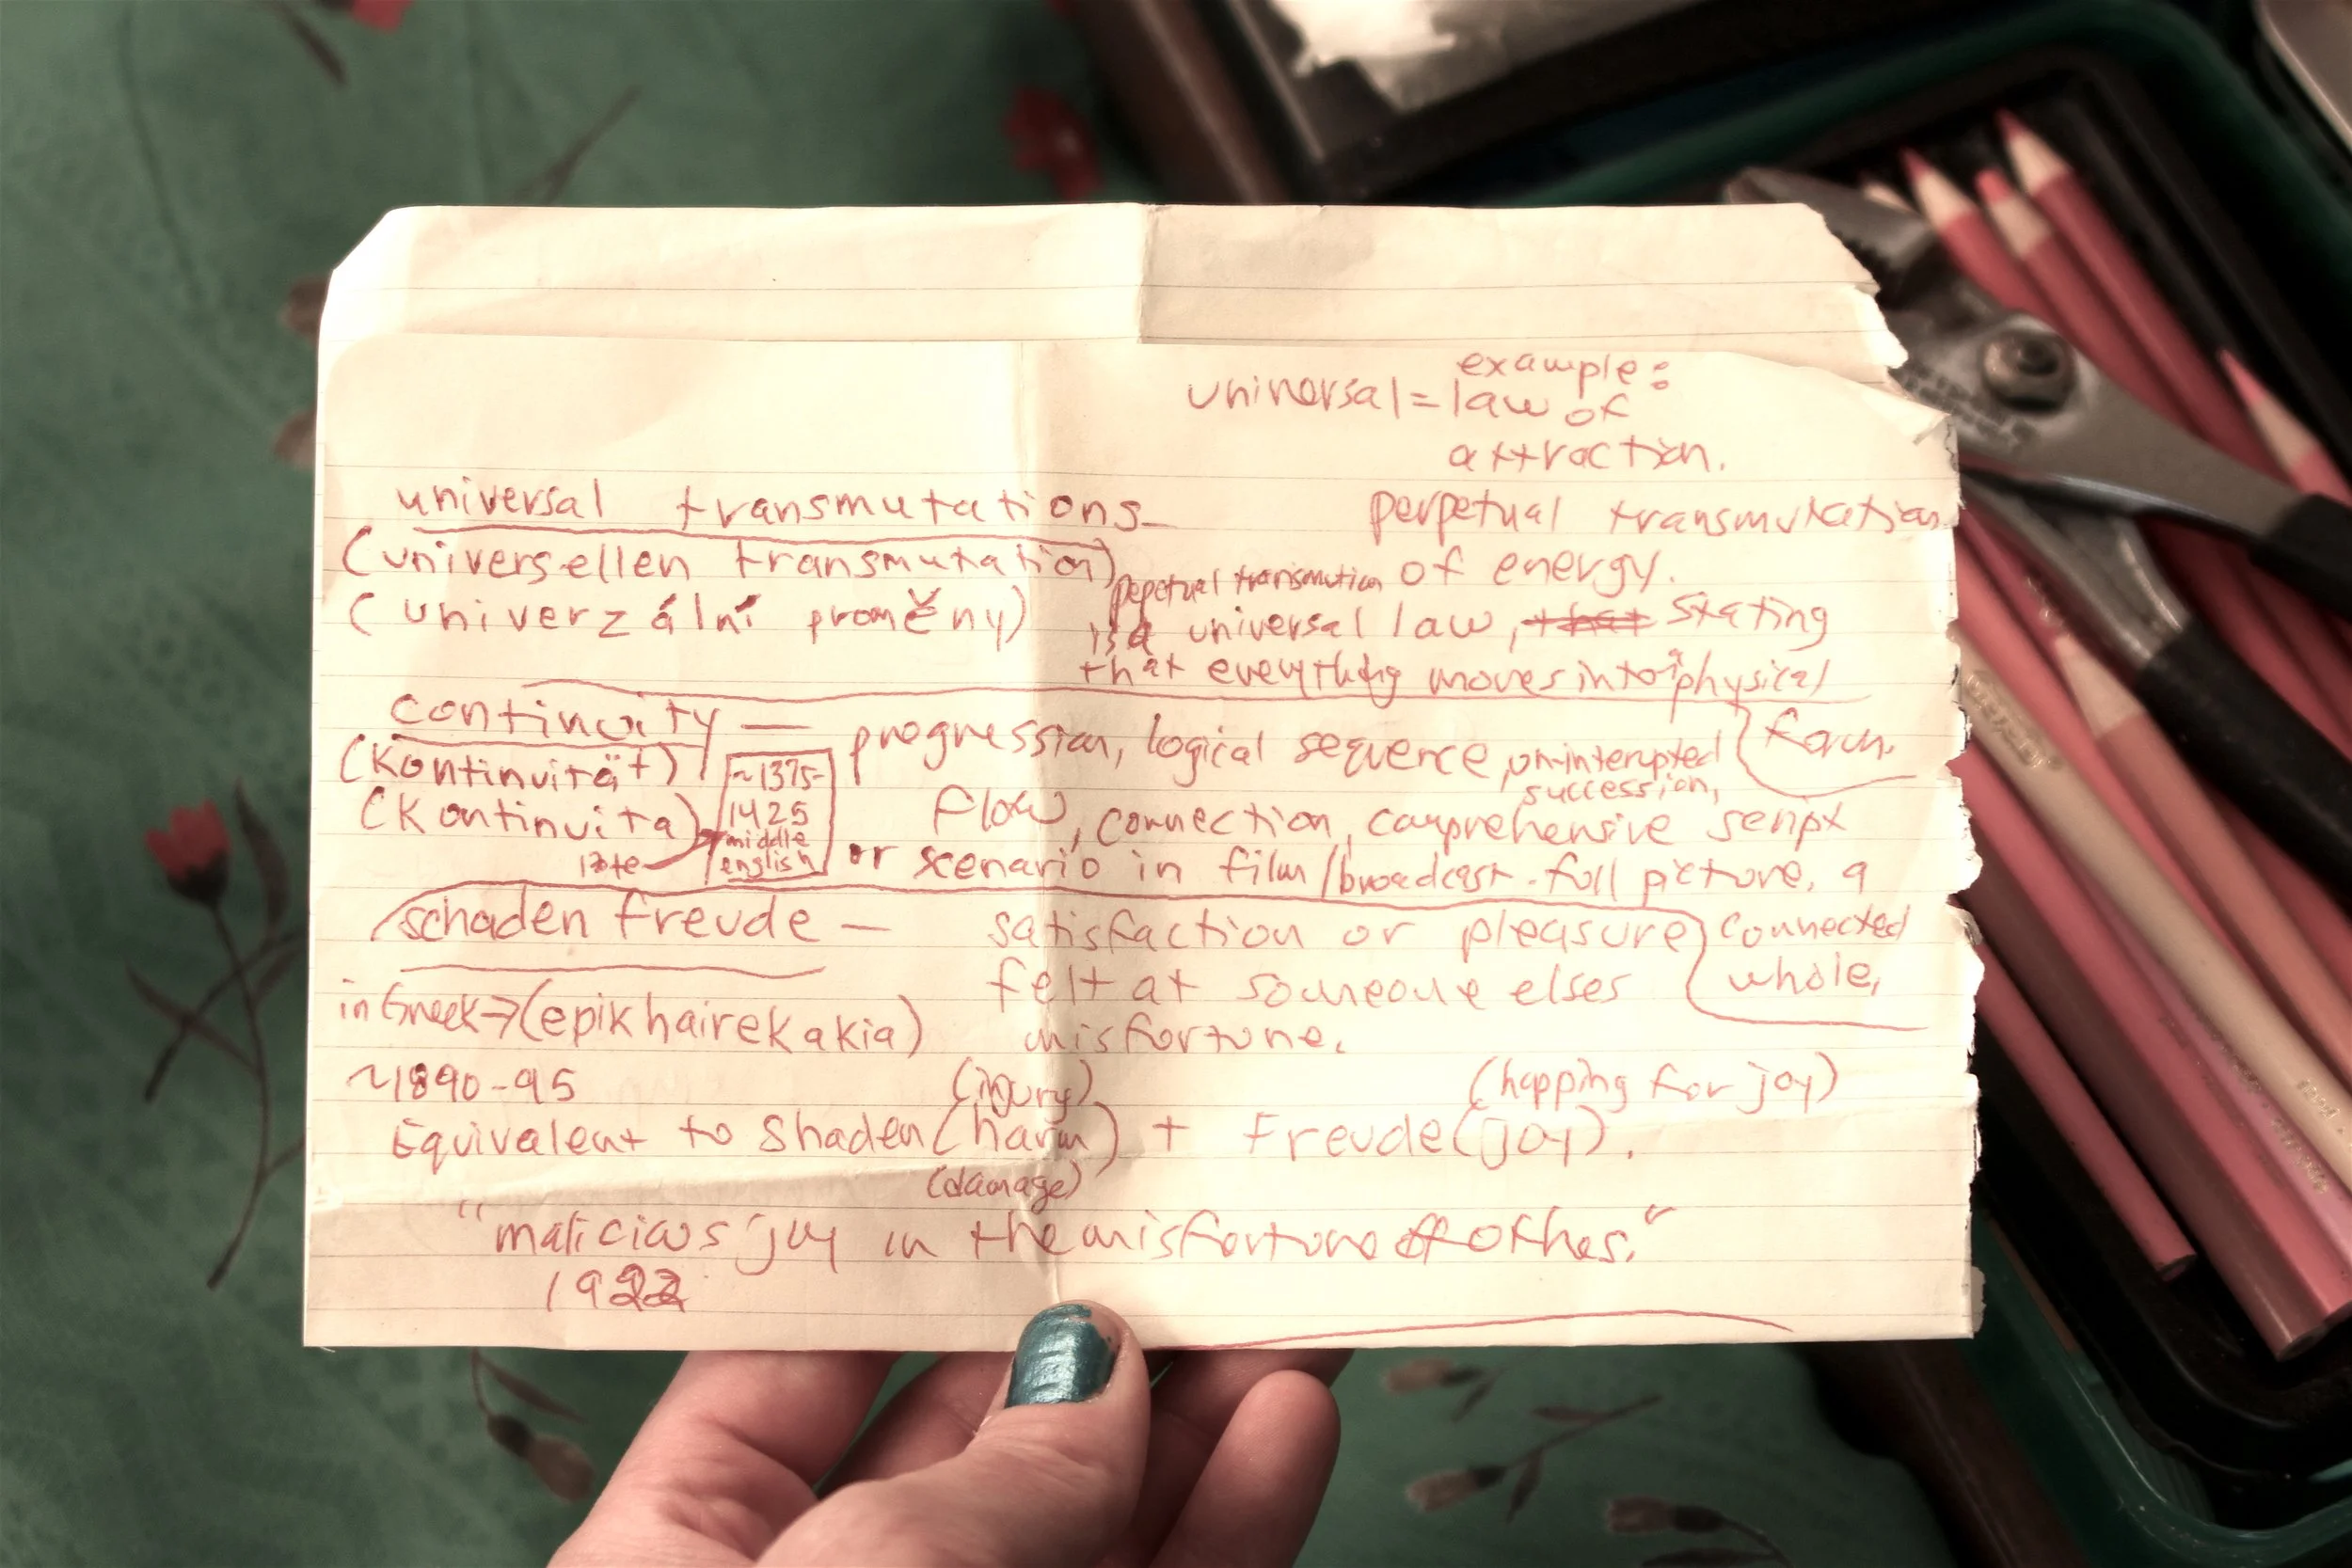 example:
universal = law of
attraction.
universal transmutations -
perpetual transmutation
(universellen transmutation)
of energy.
(univerzální proměny)
pepetual transmution
is a universal law, that stating
that everything moves into a physical
form.
continuity — progression, logical sequence, un-interupted
succession,
(Kontinuität)
~1375-
1425
middle
english
(Kontinuita)
late
flow, connection, comprehensive script
or scenario in film/broadcast. full picture, a
connected
whole,
schaden freude — satisfaction or pleasure
felt at someone elses
misfortune.
in Greek → (epikhairekakia)
~1890-95
(injury)
(hopping for joy)
Equivalent to Shaden (harm) + Freude (joy).
(damage)
"malicious joy in the misfortune of othes."
1922